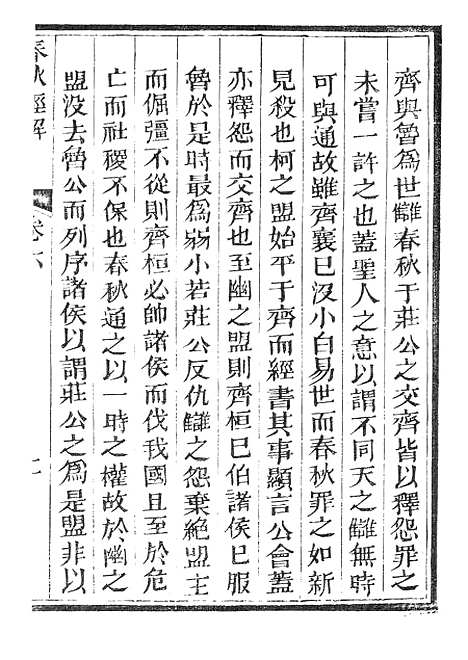 齊與魯爲世讎春秋于莊公之交齊皆以釋怨罪之
未嘗一許之也蓋聖人之意以謂不同天之讎無時
可與通故雖齊襄已沒小白易世而春秋罪之如新
見殺也柯之盟始平于齊而經書其事顯言公會蓋
亦釋怨而交齊也至幽之盟則齊桓已伯諸侯已服
魯於是時最爲弱小若莊公反仇讎之怨棄絕盟主
而倔彊不從則齊桓必帥諸侯而伐我國且至於危
亡而社稷不保也春秋通之以一時之權故於幽之
盟没去魯公而列序諸侯以謂莊公之爲是盟非以
春秋經解
卷六